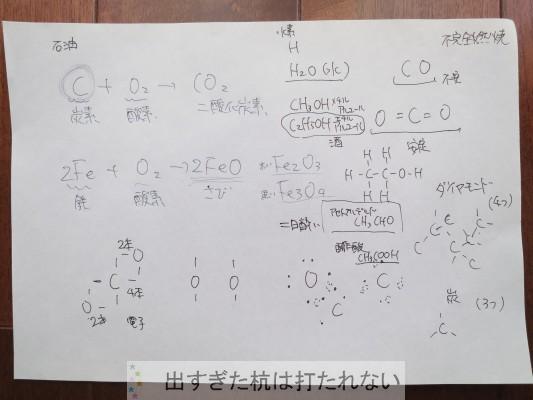 石油
C + O2 → CO2
炭素 酸素 二酸化炭素
2Fe + O2 → 2FeO
鉄 酸素 さび
赤い Fe2O3
黒い Fe3O4
水素
H
H2O
CH3OH メチルアルコール
C2H5OH エチルアルコール
酒
二日酔い
アセトアルデヒド
CH3CHO
酢酸
CH3COOH
不完全燃焼
CO 不安
O=C=O
安定
H H
H-C-C-O-H
H H
ダイヤモンド
(4つ)
C C
C C
C
炭 (3つ)
C
2本
O
C
4本
O
2本 電子
O O
O C
C
出すぎた杭は打たれない